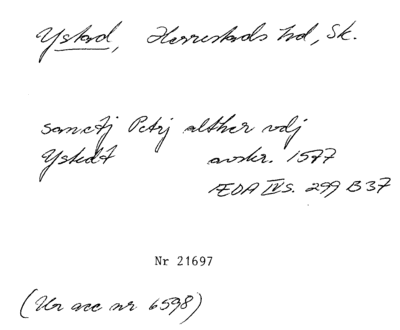 Ystad, Herrestads hd, Sk.
sanctj Petrj alther vdj
Ystedt avskr. 1577
ÆDA IV s. 299 B 37
Nr 21697
(Ur acc nr 6598)